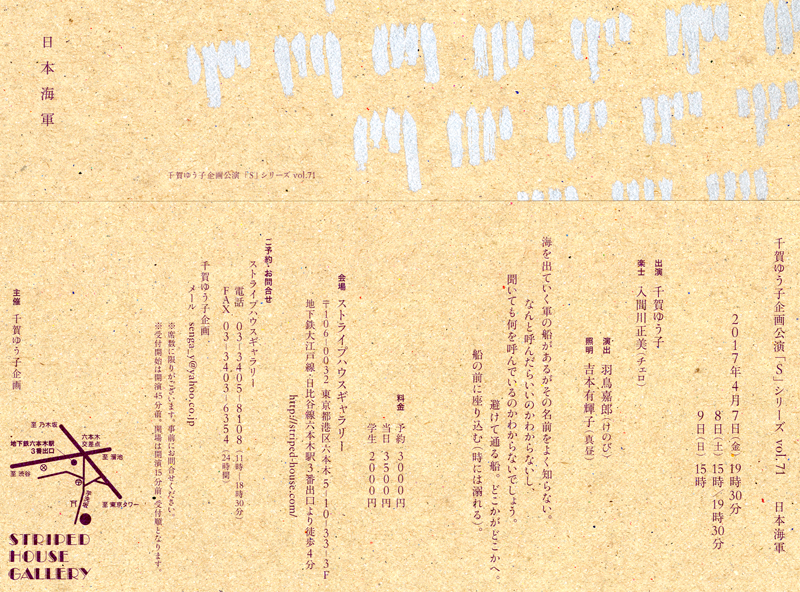 日本海軍
千賀ゆう子企画公演「S」シリーズ vol.71
千賀ゆう子企画公演「S」シリーズ vol.71　日本海軍
2017年4月7日(金) 19時30分
8日(土) 15時/19時30分
9日(日) 15時
出演 千賀ゆう子
楽士 入間川正美(チェロ)
演出 羽鳥嘉郎(けのび)
照明 吉本有輝子(真昼)
海を出ていく軍の船があるがその名前をよく知らない。
なんと呼んだらいいのかわからないし
聞いても何を呼んでいるのかわからないでしょう。
避けて通る船。どこかがどこかへ。
船の前に座り込む(時には溺れる)。
料金 予約 3000円
当日 3500円
学生 2000円
会場 ストライプハウスギャラリー
〒106-0032 東京都港区六本木5-10-33-3F
地下鉄大江戸線・日比谷線六本木駅3番出口より徒歩4分
http://striped-house.com/
ご予約・お問合せ
ストライプハウスギャラリー
電話 03-3405-8108(11時-18時30分)
FAX 03-3403-6354(24時間)
千賀ゆう子企画
メール senga_y@yahoo.co.jp
※席数に限りがございます。事前にお問合せください。
※受付開始は開演45分前、開場は開演15分前(受付順)となります。
主催 千賀ゆう子企画
至 乃木坂
六本木
交差点
地下鉄六本木駅
3番出口
至 溜池
至 渋谷
芋洗坂
至 東京タワー
STRIPED
HOUSE
GALLERY